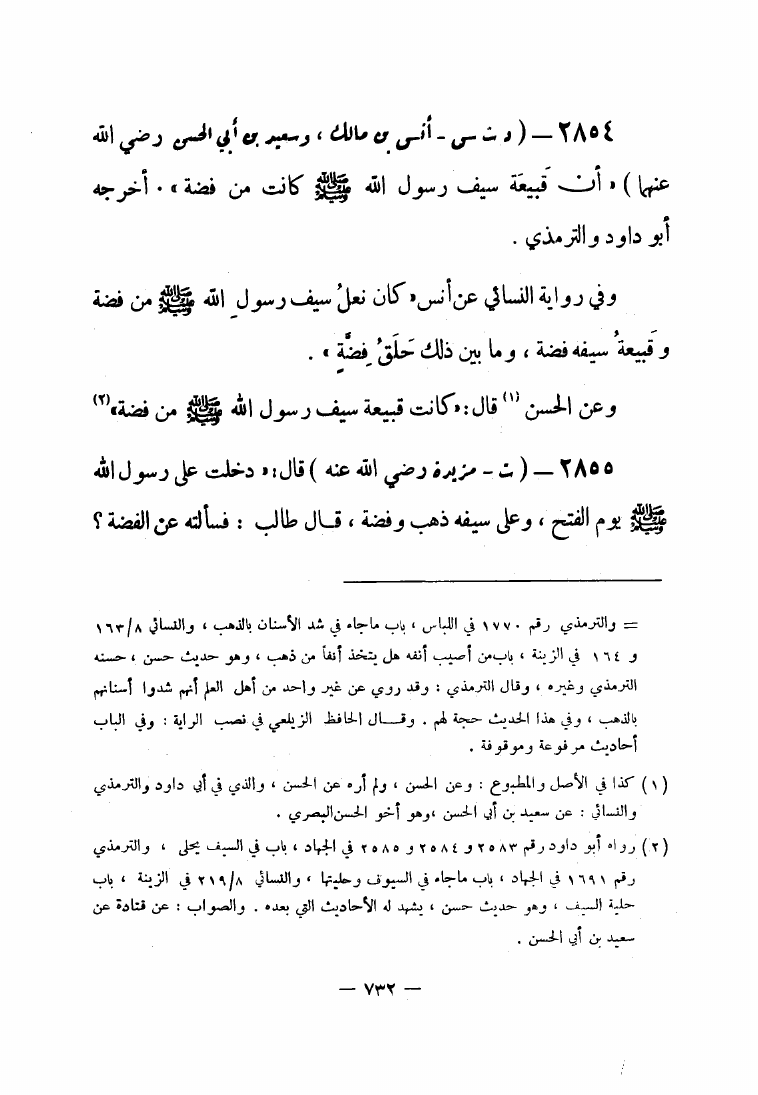 ٢٨٥٤ — ( د ت س - أنس بن مالك ، وسعيد بن أبي الحسن رضي الله
عنهما ) « أن قَبيعَة سيف رسول الله ﷺ كانت من فضة » . أخرجه
أبو داود والترمذي .
وفي رواية النسائي عن أنس « كان نعلُ سيف رسولِ الله ﷺ من فضة
وقَبيعةُ سيفه فضة ، وما بين ذلك حَلَقُ فِضَّةٍ » .
وعن الحسن (١) قال : « كانت قبيعة سيف رسول الله ﷺ من فضة» (٢)
٢٨٥٥ — ( ت - مزيدة رضي الله عنه ) قال : « دخلت على رسول الله
ﷺ يوم الفتح ، وعلى سيفه ذهب وفضة ، قـال طالب : فسألته عن الفضة ؟
= والترمذي رقم ١٧٧٠ في اللباس ، باب ماجاء في شد الأسنان بالذهب ، والنسائي ١٦٣/٨
و ١٦٤ في الزينة ، باب من أصيب أنفه هل يتخذ أنفاً من ذهب ، وهو حديث حسن ، حسنه
الترمذي وغيره ، وقال الترمذي : وقد روي عن غير واحد من أهل العلم أنهم شدوا أسنانهم
بالذهب ، وفي هذا الحديث حجة لهم . وقـــال الحافظ الزيلعي في نصب الراية : وفي الباب
أحاديث مرفوعة وموقوفة .
(١) كذا في الأصل والمطبوع : وعن الحسن ، ولم أره عن الحسن ، والذي في أبي داود والترمذي
والنسائي : عن سعيد بن أبي الحسن ،وهو أخو الحسن البصري .
(٢) رواه أبو داود رقم ٢٥٨٣ و ٢٥٨٤ و ٢٥٨٥ في الجهاد ، باب في السيف يحلى ، والترمذي
رقم ١٦٩١ في الجهاد ، باب ماجاء في السيوف وحليتها ، والنسائي ٢١٩/٨ في الزينة ، باب
حلية السيف ، وهو حديث حسن ، يشهد له الأحاديث التي بعده . والصواب : عن قتادة عن
سعيد بن أبي الحسن .
— ٧٣٢ —